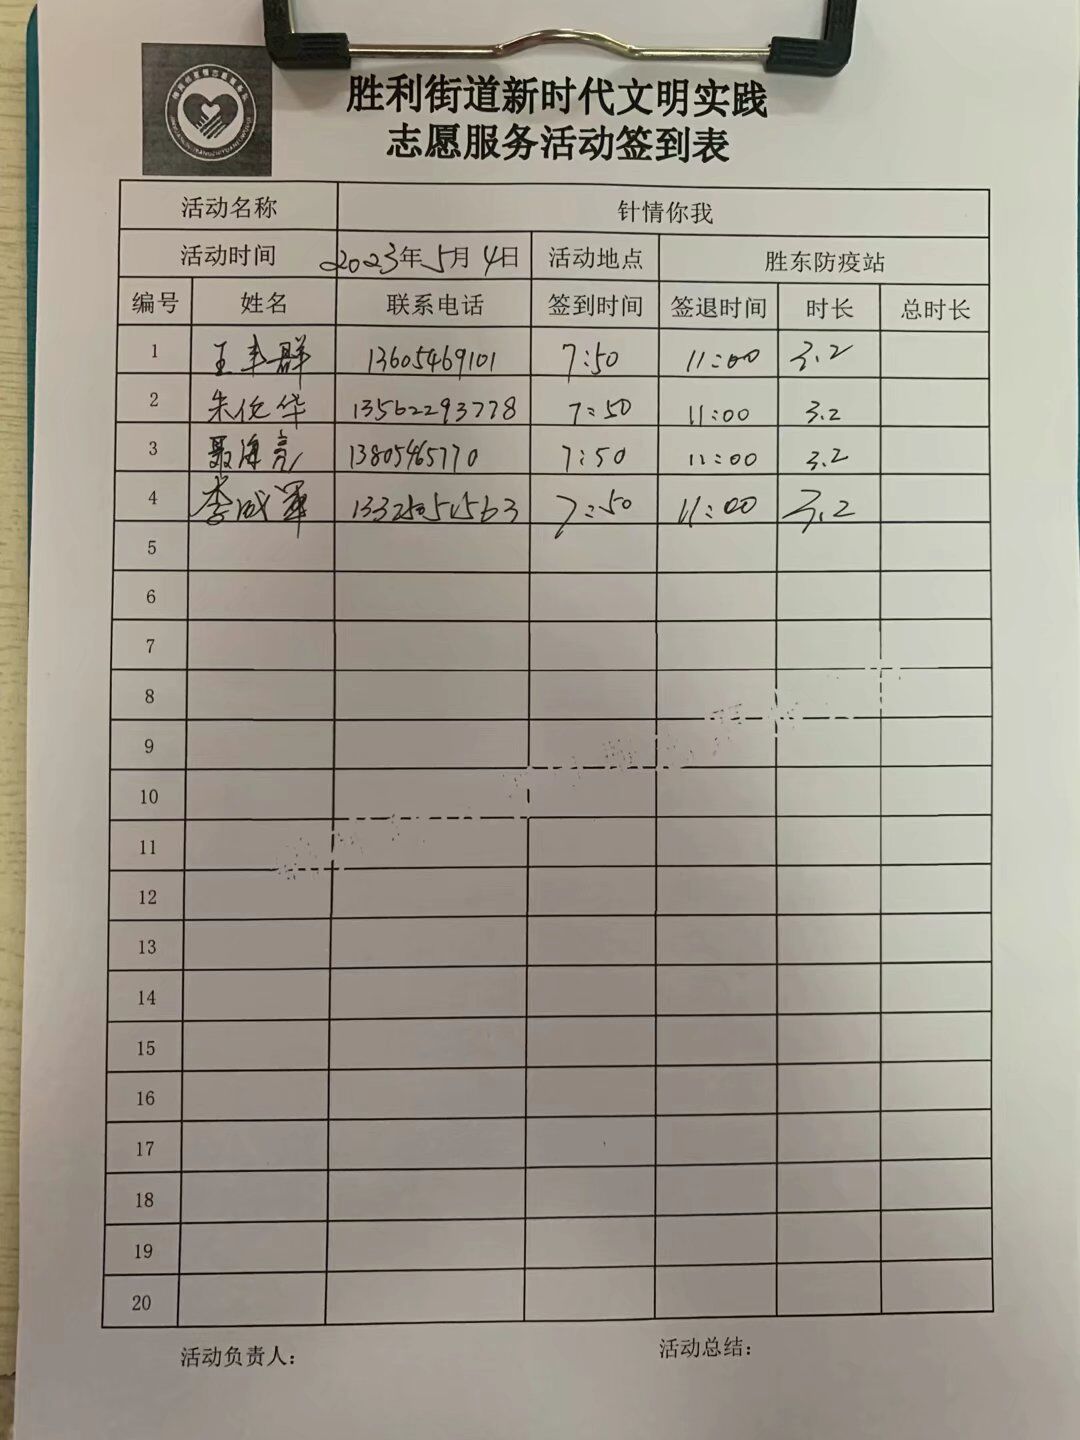 胜利街道新时代文明实践
志愿服务活动签到表
活动名称 针情你我
活动时间 2023年5月4日 活动地点 胜东防疫站
编号 姓名 联系电话 签到时间 签退时间 时长 总时长
1 王丰群 13605469101 7:50 11:00 3.2
2 朱俊华 13562293778 7:50 11:00 3.2
3 聂海亮 13805465770 7:50 11:00 3.2
4 李成军 7:50 11:00 3.2
5
6
7
8
9
10
11
12
13
14
15
16
17
18
19
20
活动负责人: 活动总结: